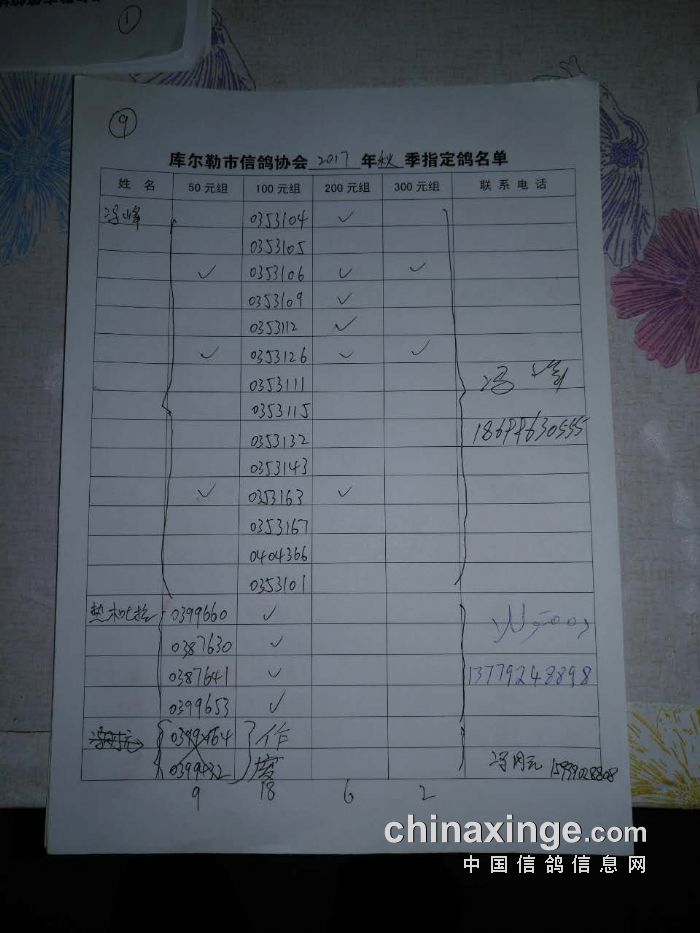 ①
⑨
库尔勒市信鸽协会 2017 年 秋 季指定鸽名单
姓 名 50元组 100元组 200元组 300元组 联系电话
冯峰 0353104 ✓
0353105
✓ 0353106 ✓ ✓
0353109 ✓
0353112 ✓
✓ 0353126 ✓ ✓
0353111
0353115
0353132
0353143
✓ 0353163 ✓
0353167
0404366
0353101
0399660 ✓
0387630 ✓
0387641 ✓
13779248898
0399653 ✓
作
废
9 18 6 2
chinaxinge.com
中国信鸽信息网